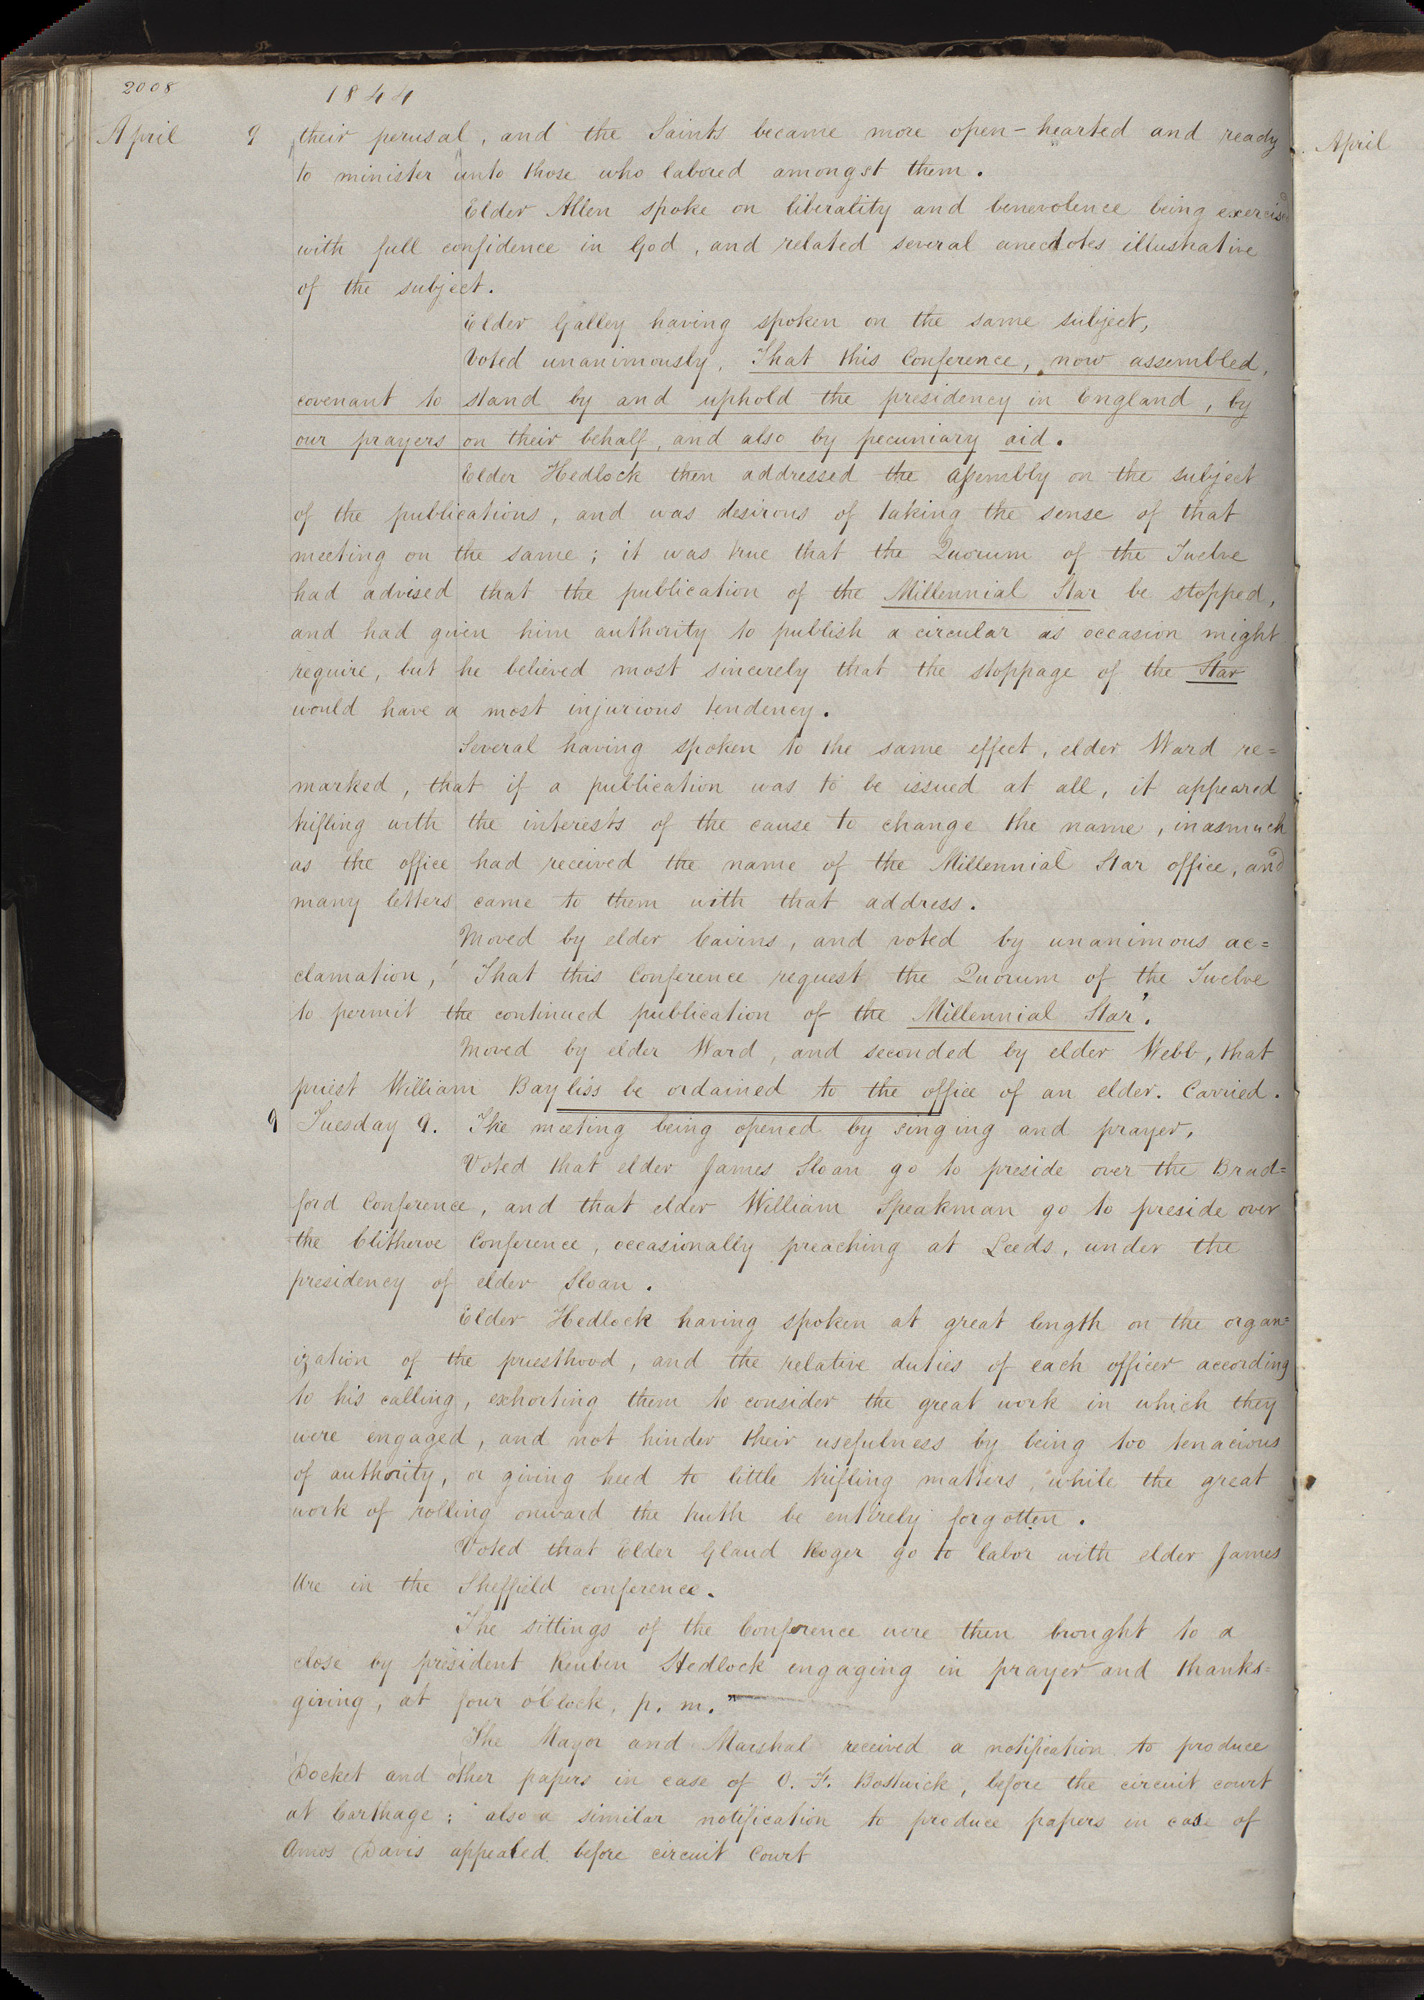 2008
1844
April 9 their perusal, and the Saints became more open-hearted and ready
to minister unto those who labored amongst them.
Elder Allen spoke on liberality and benevolence being exercised
with full confidence in God, and related several anecdotes illustrative
of the subject.
Elder Galley having spoken on the same subject,
Voted unanimously, That this Conference, now assembled,
covenant to stand by and uphold the presidency in England, by
our prayers on their behalf, and also by pecuniary aid.
Elder Hedlock then addressed the assembly on the subject
of the publications, and was desirous of taking the sense of that
meeting on the same; it was true that the Quorum of the Twelve
had advised that the publication of the Millennial Star be stopped,
and had given him authority to publish a circular as occasion might
require, but he believed most sincerely that the stoppage of the Star
would have a most injurious tendency.
Several having spoken to the same effect, elder Ward re=
marked, that if a publication was to be issued at all, it appeared
trifling with the interests of the cause to change the name, inasmuch
as the office had received the name of the Millennial Star office, and
many letters came to them with that address.
Moved by elder Cairns, and voted by unanimous ac=
clamation, "That this Conference request the Quorum of the Twelve
to permit the continued publication of the Millennial Star".
Moved by elder Ward, and seconded by elder Webb, that
priest William Bayliss be ordained to the office of an elder. Carried.
9 Tuesday 9. The meeting being opened by singing and prayer,
Voted that elder James Sloan go to preside over the Brad=
ford Conference, and that elder William Speakman go to preside over
the Clitheroe Conference, occasionally preaching at Leeds, under the
presidency of elder Sloan.
Elder Hedlock having spoken at great length on the organ=
ization of the priesthood, and the relative duties of each officer according
to his calling, exhorting them to consider the great work in which they
were engaged, and not hinder their usefulness by being too tenacious
of authority, or giving heed to little trifling matters, while the great
work of rolling onward the truth be entirely forgotten.
Voted that Elder Glaud Roger go to labor with elder James
Ure in the Sheffield conference.
The sittings of the Conference were then brought to a
close by president Reuben Hedlock engaging in prayer and thanks=
giving, at four o'Clock, p. m."
The Mayor and Marshal received a notification to produce
Docket and other papers in case of O. F. Bostwick, before the circuit court
at Carthage; also a similar notification to produce papers in case of
Amos Davis appealed before circuit Court
April